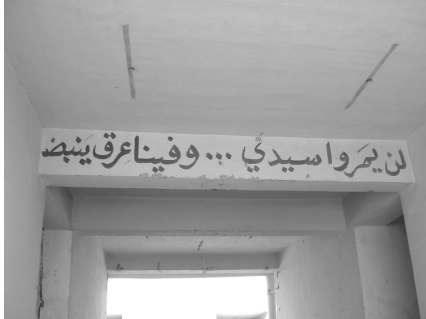 لن يمروا سيدي ... وفينا عرق ينبض